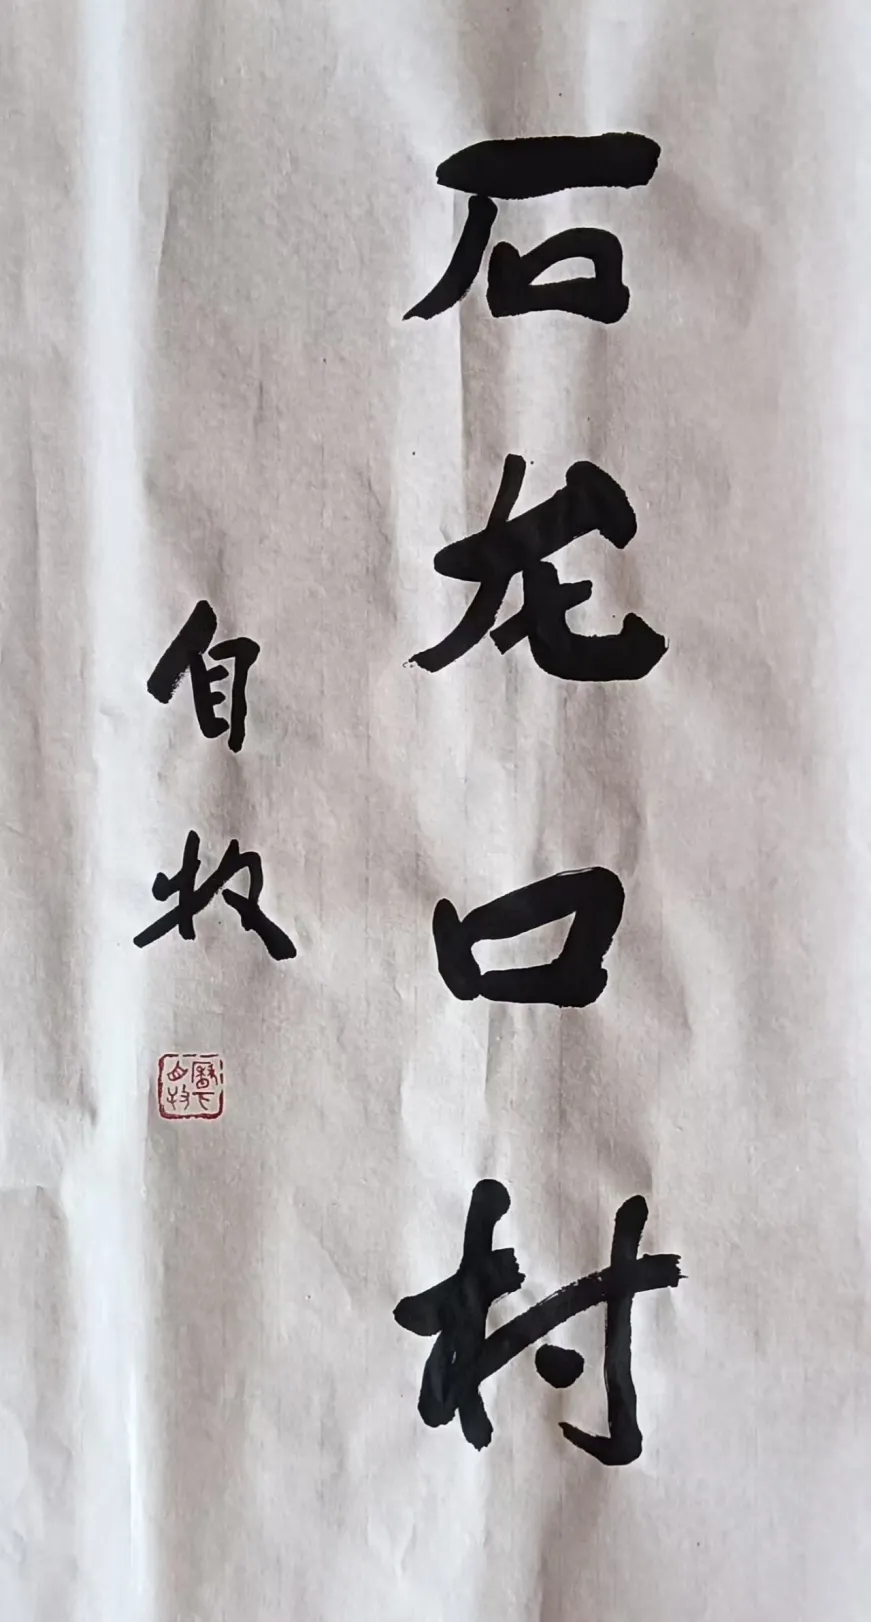 石龙口村
自牧